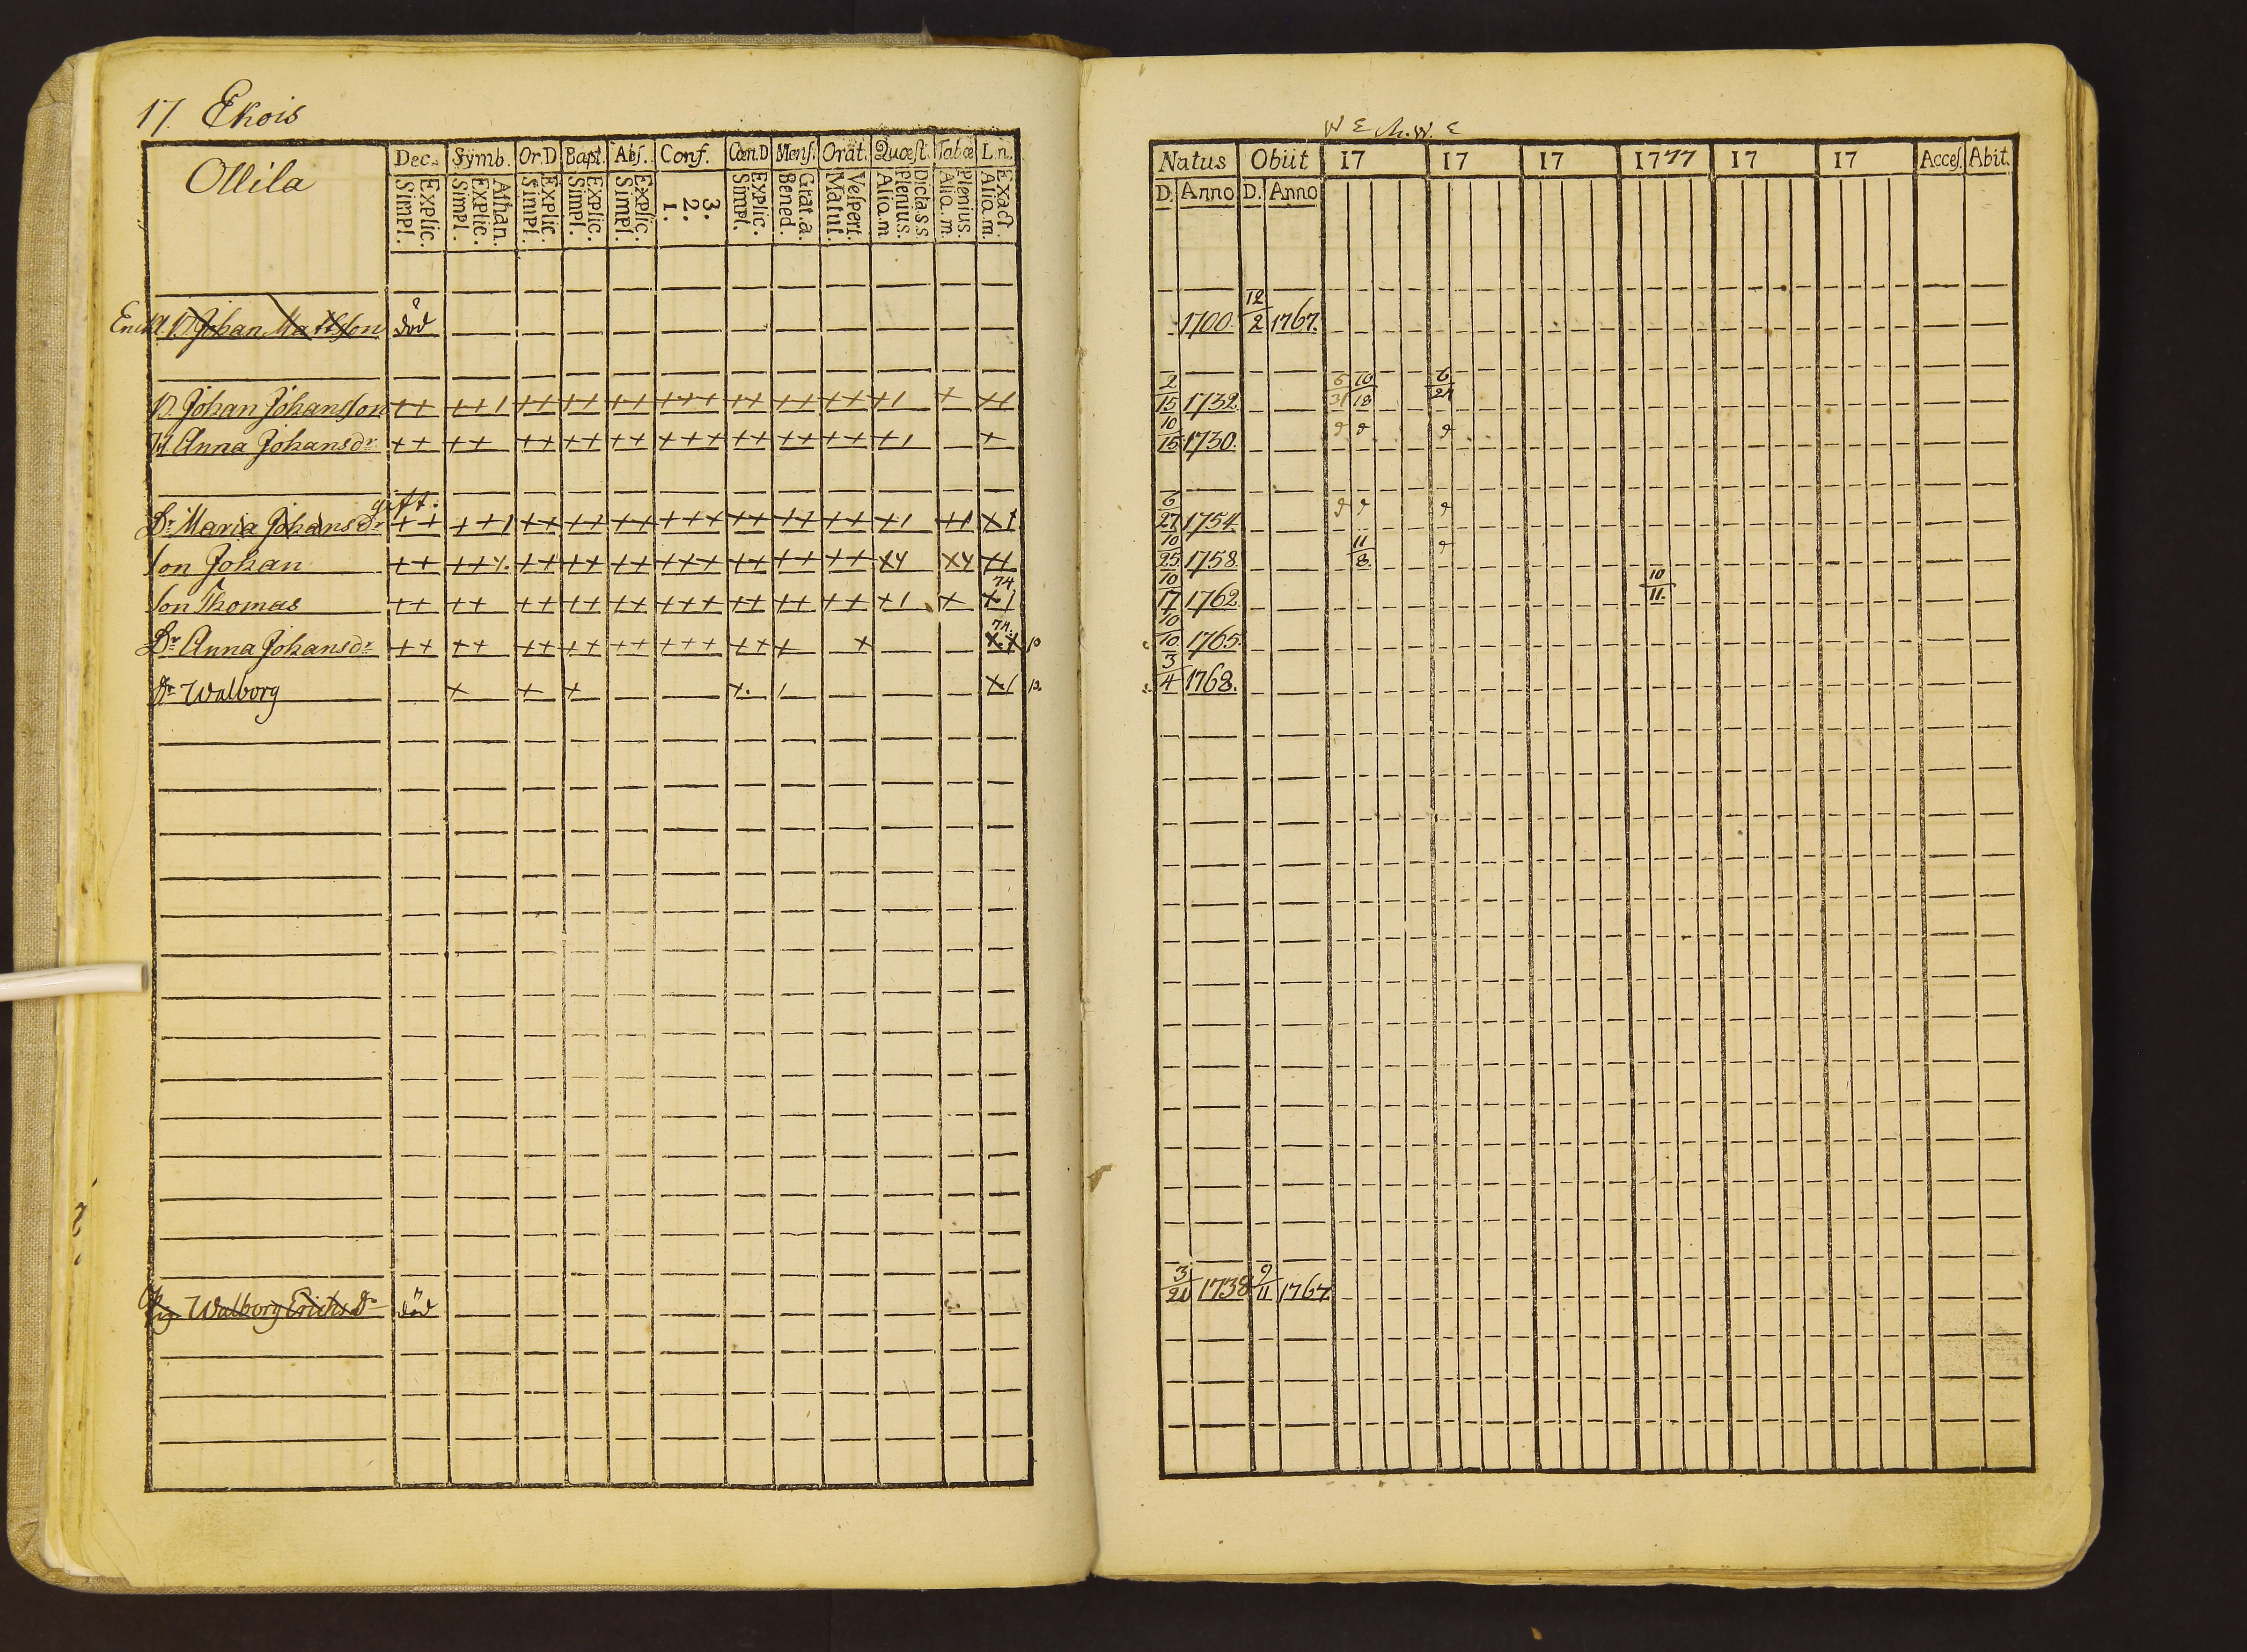 17. Ekois
Ollila
Dec. Symb. Or.D Bapt. Abs. Conf. Cœn.D Mens. Orat. Quæst. Tabæ L.n.
Explic. Simpl. Athan. Explic. Simpl. Explic. Simpl. Explic. Simpl. Explic. Simpl. 3. 2. 1. Explic. Simpl. Grat.a. Bened. Vespert. Matut. Dicta.s.s. Plenius. Alia.m. Plenius. Alia.m. Exact. Alia.m.
Enckl. B. Johan Mattsson död
B. Johan Johansson ++ ++1 ++ ++ ++ +++ ++ ++ ++ +1 + +1
H. Anna Johansdr ++ ++ ++ ++ ++ +++ ++ ++ ++ +1 +
gift.
Dr. Maria Johansdr ++ ++1 ++ ++ ++ +++ ++ ++ ++ +1 +1 +1
son Johan ++ ++ ++ ++ ++ +++ ++ ++ ++
74
son Thomas ++ ++ ++ ++ ++ +++ ++ ++ ++ +1 + +1
74.
Dr Anna Johansdr ++ ++ ++ ++ ++ +++ ++ + +
Dr Walborg + + +
Pig. Walborg Erichsdr död
Natus Obiit 17 17 17 1777 17 17 Acces. Abit.
D. Anno D. Anno
1700. 12/2 1767.
2/15 1732. 6/31 10/18 6/24
10/15 1730.
6/27 1754.
10/25 1758. 11/8
10/17 1762. 10/11.
10/10 1765.
3/4 1768.
3/20 1738 9/11 1767.